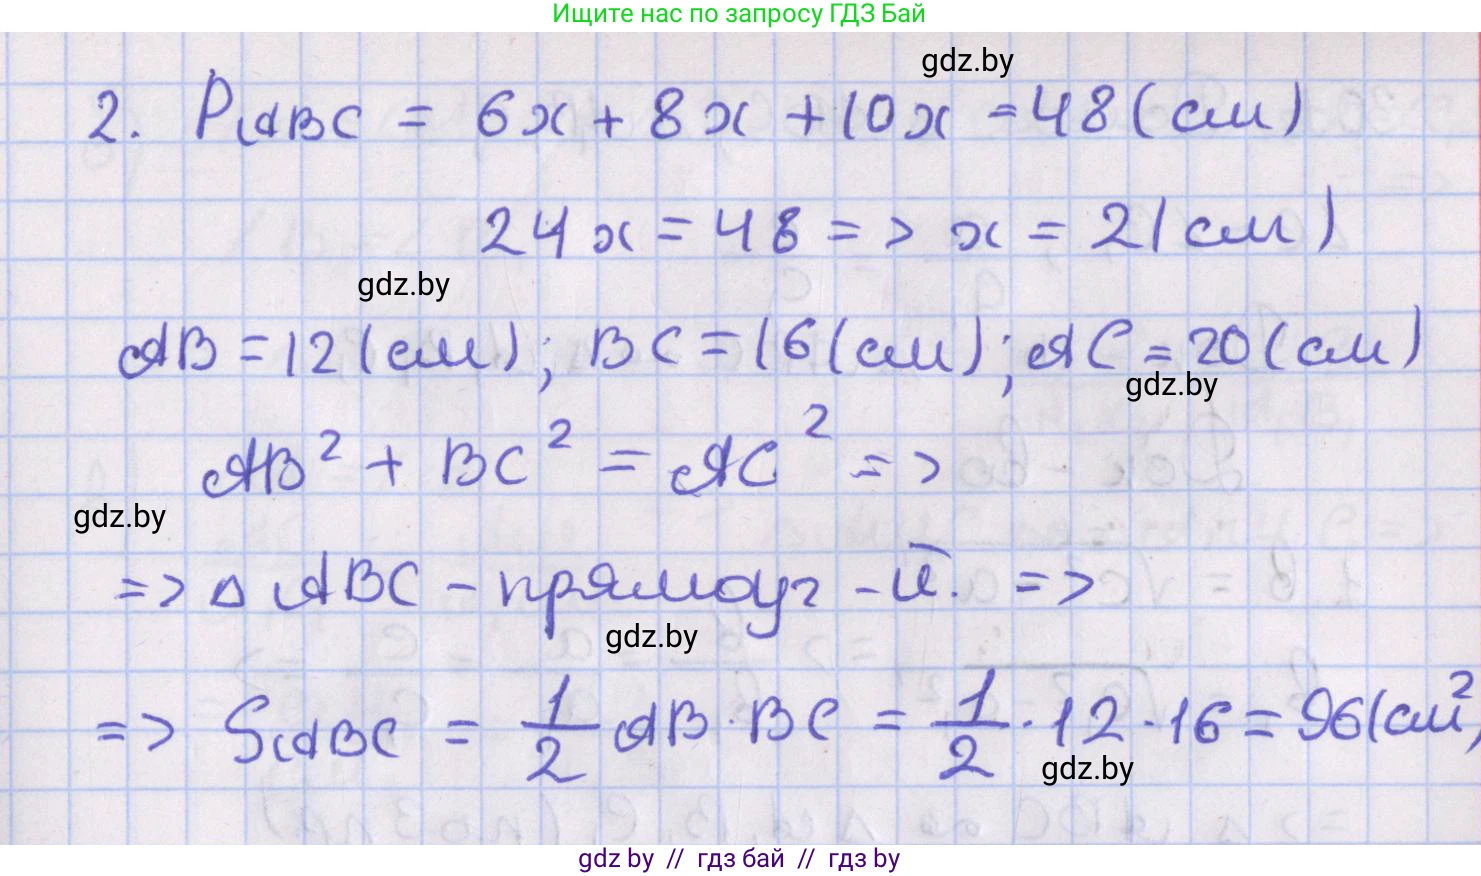 Ищите нас по запросу ГДЗ Бай
gdz.by
2. P_ABC = 6x + 8x + 10x = 48 (см)
24x = 48 => x = 2 (см)
gdz.by
AB = 12 (см); BC = 16 (см); AC = 20 (см)
gdz.by
AB² + BC² = AC² =>
gdz.by
=> △ ABC - прямоуг-й. =>
gdz.by
=> S_ABC = 1/2 AB · BC = 1/2 · 12 · 16 = 96 (см²)
gdz.by
gdz by // гдз бай // гдз by